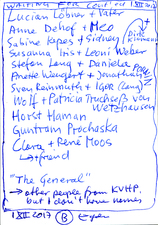 WAITING FOR
XII 2017
Lucian Lobner + Vater
Anne Dehof + Nico
Sabine Kapes + Sidney
Susanna Iris + Leoni Weber
Stefan Lang + Daniela
Anette Weingert + Jonathan
Sven Reinmuth + Igor (Lang)
Wolf + Patricia Truchseß von
Wetzhausen
Horst Haman
Guntram Prochaska
Clara + René Moos
+ friend
"The General"
→ other people from KVHP.
but I don't know names
1 XII 2017 B